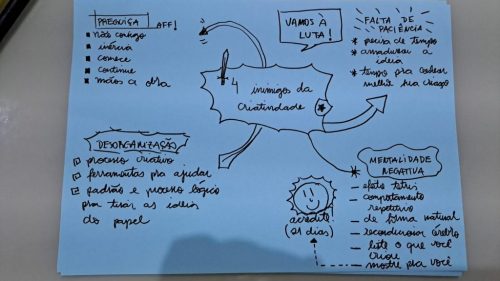 PREGUIÇA
AFF!
não começo
inércia
comece
continue
mãos à obra
VAMOS À
LUTA!
FALTA DE
PACIÊNCIA
precisa de tempo
amadurecer a
ideia
tempo pra
melhor
4 inimigos da
criatividade
DESORGANIZAÇÃO
processo criativo
ferramentas pra ajudar
padrão e processo lógico
pra tirar as ideias
do papel
MENTALIDADE
NEGATIVA
efeito tetris
comportamento
repetitivo
de forma natural
recondicionar cérebro
liste o que você
mostre pra você
acredite!
(21 dias)